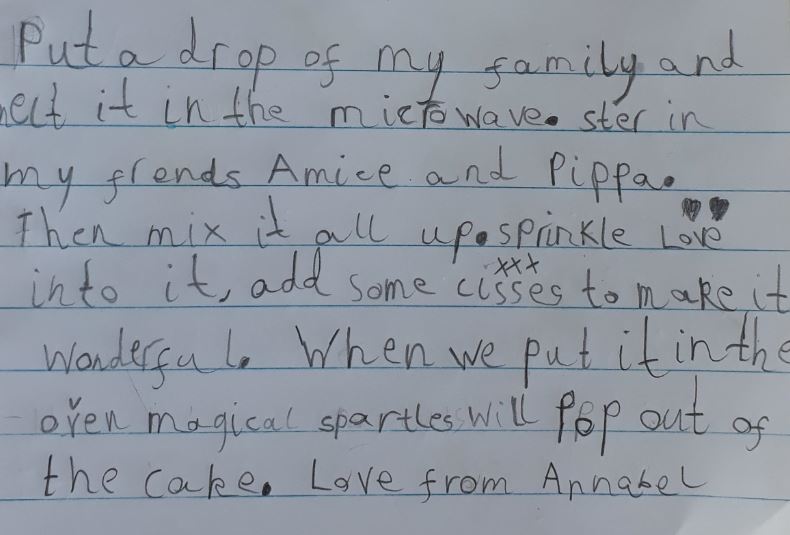 Put a drop of my family and
helt it in the microwave. ster in
my frends Amice and Pippa.
Then mix it all up. sprinkle Love
xxx
into it, add some cisses to make it
wonderful. When we put it in the
oven magical spartles will Pop out of
the cake. Love from Annabel